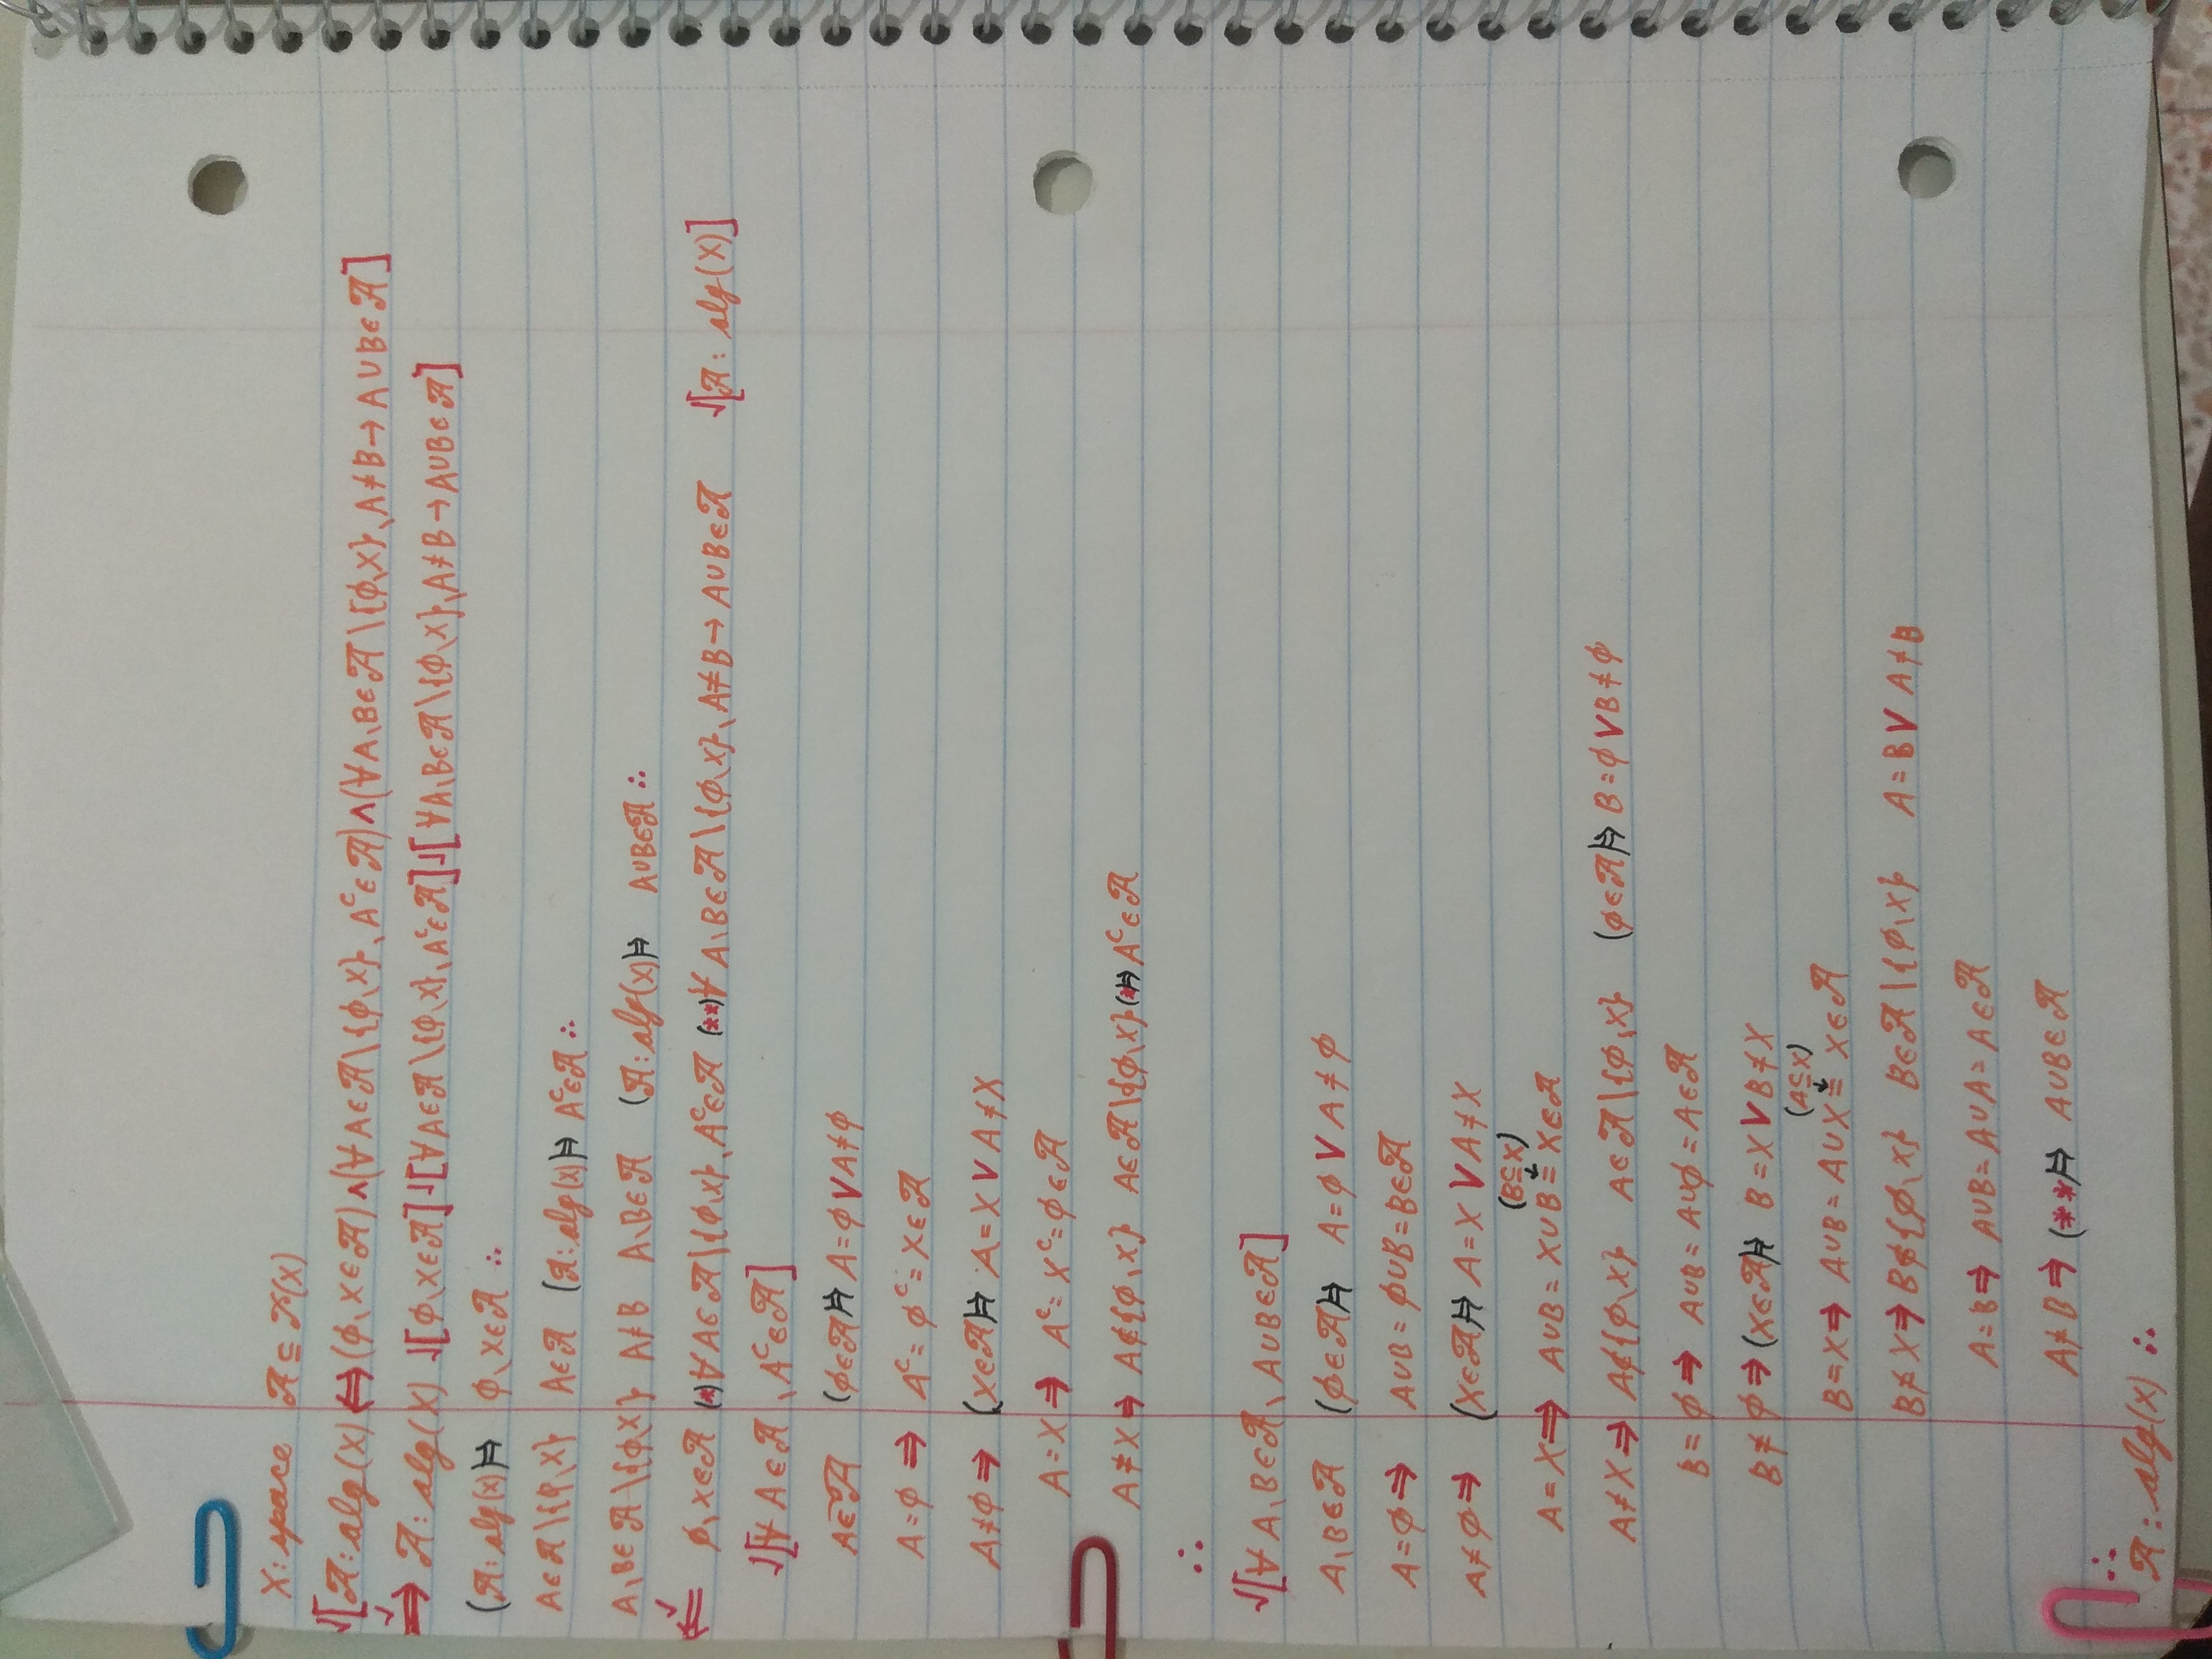 X: space 𝒜 ⊆ 𝒫(X)
√[𝒜: alg(X) ⇔ (φ\,X∈𝒜) ∧ (∀A∈𝒜\{φ\,X}\,A^c∈𝒜) ∧ (∀A\,B∈𝒜\{φ\,X}\,A≠B → A∪B∈𝒜]
⇒√ 𝒜: alg(X) √[φ\,X∈𝒜] √[∀A∈𝒜\{φ\,X}\,A^c∈𝒜] √[∀A\,B∈𝒜\{φ\,X}\,A≠B → A∪B∈𝒜]
(𝒜: alg(X)) ⊨ φ\,X∈𝒜 ∴
A∈𝒜\{φ\,X} A∈𝒜 (𝒜: alg(X)) ⊨ A^c∈𝒜 ∴
A\,B∈𝒜\{φ\,X} A≠B A\,B∈𝒜 (𝒜: alg(X)) ⊨ A∪B∈𝒜 ∴
⇐√ φ\,X∈𝒜 (*)∀A∈𝒜\{φ\,X}\,A^c∈𝒜 (**)∀A\,B∈𝒜\{φ\,X}\,A≠B → A∪B∈𝒜 √[𝒜: alg(X)]
√[∀A∈𝒜\,A^c∈𝒜]
A∈𝒜 (φ∈𝒜) ⊨ A=φ ∨ A≠φ
A=φ ⇒ A^c=φ^c=X∈𝒜
A≠φ ⇒ (X∈𝒜) ⊨ A=X ∨ A≠X
A=X ⇒ A^c=X^c=φ∈𝒜
A≠X ⇒ A∉{φ\,X} A∈𝒜\{φ\,X} (*)⊨ A^c∈𝒜
∴
√[∀A\,B∈𝒜\,A∪B∈𝒜]
A\,B∈𝒜 (φ∈𝒜) ⊨ A=φ ∨ A≠φ
A=φ ⇒ A∪B=φ∪B=B∈𝒜
A≠φ ⇒ (X∈𝒜) ⊨ A=X ∨ A≠X
(B⊆X)
↓
A=X ⇒ A∪B=X∪B=X∈𝒜
A≠X ⇒ A∉{φ\,X} A∈𝒜\{φ\,X} (φ∈𝒜) ⊨ B=φ ∨ B≠φ
B=φ ⇒ A∪B=A∪φ=A∈𝒜
B≠φ ⇒ (X∈𝒜) ⊨ B=X ∨ B≠X
(A⊆X)
↓
B=X ⇒ A∪B=A∪X=X∈𝒜
B≠X ⇒ B∉{φ\,X} B∈𝒜\{φ\,X} A=B ∨ A≠B
A=B ⇒ A∪B=A∪A=A∈𝒜
A≠B ⇒ (**) ⊨ A∪B∈𝒜
∴
𝒜: alg(X) ∴